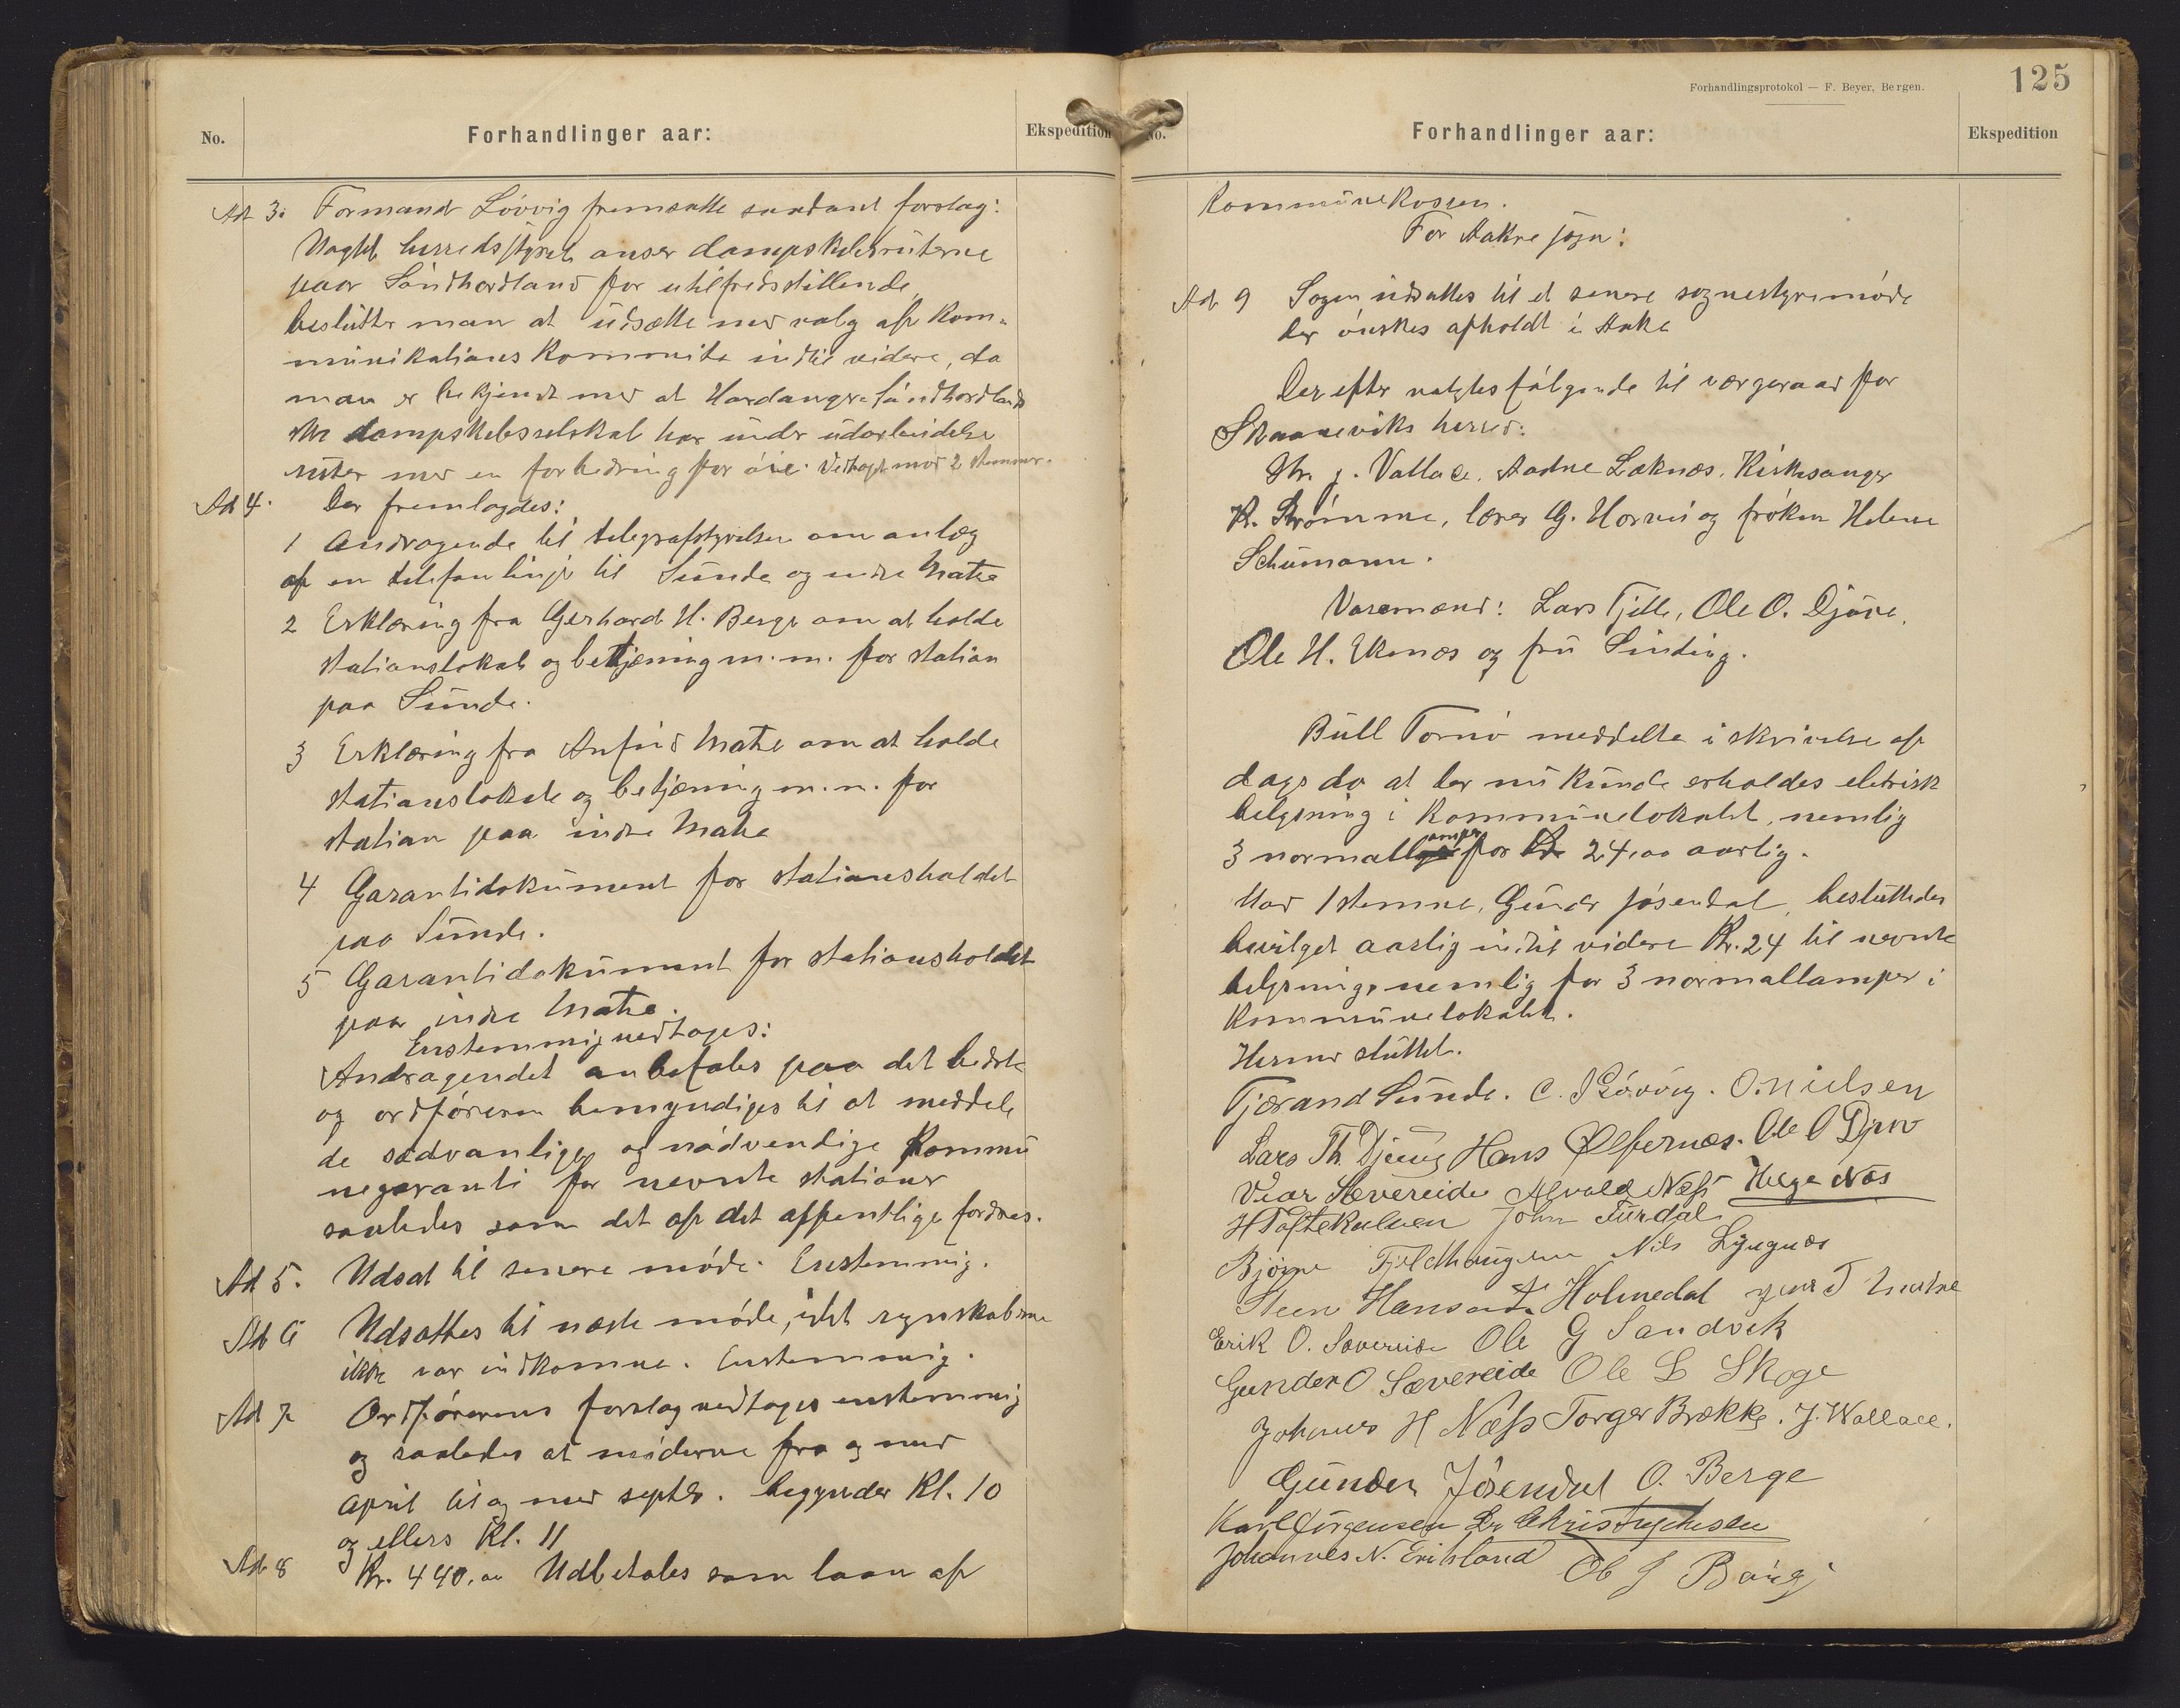 No.
Forhandlinger aar:
Ekspedition
Adt 3. Formand Lövvig fremsatte saadant forslag:
Uagtet herredsstyret anser dampskibsruterne
paa Söndhordland for utilfredsstillende,
beslutter man at udsætte med valg af Kom-
munikations Kommite indtil videre, da
man er bekjendt med at Hardanger Söndhordlands
ske dampskibsselskab har under udarbeidelse
ruter med en forbedring for öie. Vedtaget mod 2 stemmer.
Ad 4. Der fremlagdes:
1 Andragende til telegrafstyrelsen om anlæg
af en telefonlinje til Sunde og indre Matre
2 Erklæring fra Gerhard H. Berge om at holde
stationslokale og betjening m.m. for station
paa Sunde.
3 Erklæring fra Anfind Matre om at holde
stationslokale og betjening m.m. for
station paa indre Matre
4 Garantidokument for stationsholdet
paa Sunde.
5 Garantidokument for stationsholdet
paa indre Matre.
Enstemmig vedtages:
Andragendet anbefales paa det bedste
og ordföreren bemyndiges til at meddele
de sædvanlige og nödvendige Kommu
negaranti for nevnte stationer
saaledes som det af det offentlige fordres.
Ad 5. Udsat til senere möde. Enstemmig.
Ad 6 Udsattes til næste möde, idet regnskaberne
ikke var indkomne. Enstemmig.
Ad 7 Ordförerens forslag vedtages enstemmig
og saaledes at möderne fra og med
April til og med septbr. begynder Kl. 10
og ellers Kl. 11
Ad 8 Kr. 440,00 Udbetales som laan af
Forhandlingsprotokol — F. Beyer, Bergen.
125
No.
Forhandlinger aar:
Ekspedition
Kommunekassen.
For Aakre sogn:
Ad 9 Sagen udsattes til et senere sognestyremöde
der önskes afholdt i Aake
Der efter valgtes fölgende til værgeraad for
Skaaneviks herred:
Hr. J. Vallace, Aadne Læknæs, Kirkesanger
K. Strömme, lærer G. Horvei og fröken Helene
Schumann.
Varemænd: Lars Tjelle, Ole O. Djöve,
Ole H. Ekenæs og fru Sinding.
Bull Tornö meddelte i skrivelse af
dags da at der nu kunde erholdes eletrisk
belysning i Kommunelokalet, nemlig
3 normallamper for Kr 24,00 aarlig.
Mod 1 stemme, Gunder Jösendal, besluttedes
bevilget aarlig indtil videre Kr. 24 til nevnte
belysning, nemlig for 3 normallamper i
Kommunelokalet.
Hermed sluttet.
Tjærand Sunde. C. J Lövvig. O. Nielsen
Lars Th. Hans Ølfernæs. Ole O Djøv
Vear Sævereide Alvald Næss Helge Næs
H Toftekalven John Furdal
Björne Fjeldhaugen Nils Lyngnæs
Steen Hanson Holmedal T Matre
Erik O. Sævereide Ole G Sandvik
Gunder O Sævereide Ole L Skoge
Johannes H Næss Torger Brække. J. Wallace.
Gunder Jösendal O. Berge
Karl Jörgensen Chris
Johannes N. Eriksland Ole J